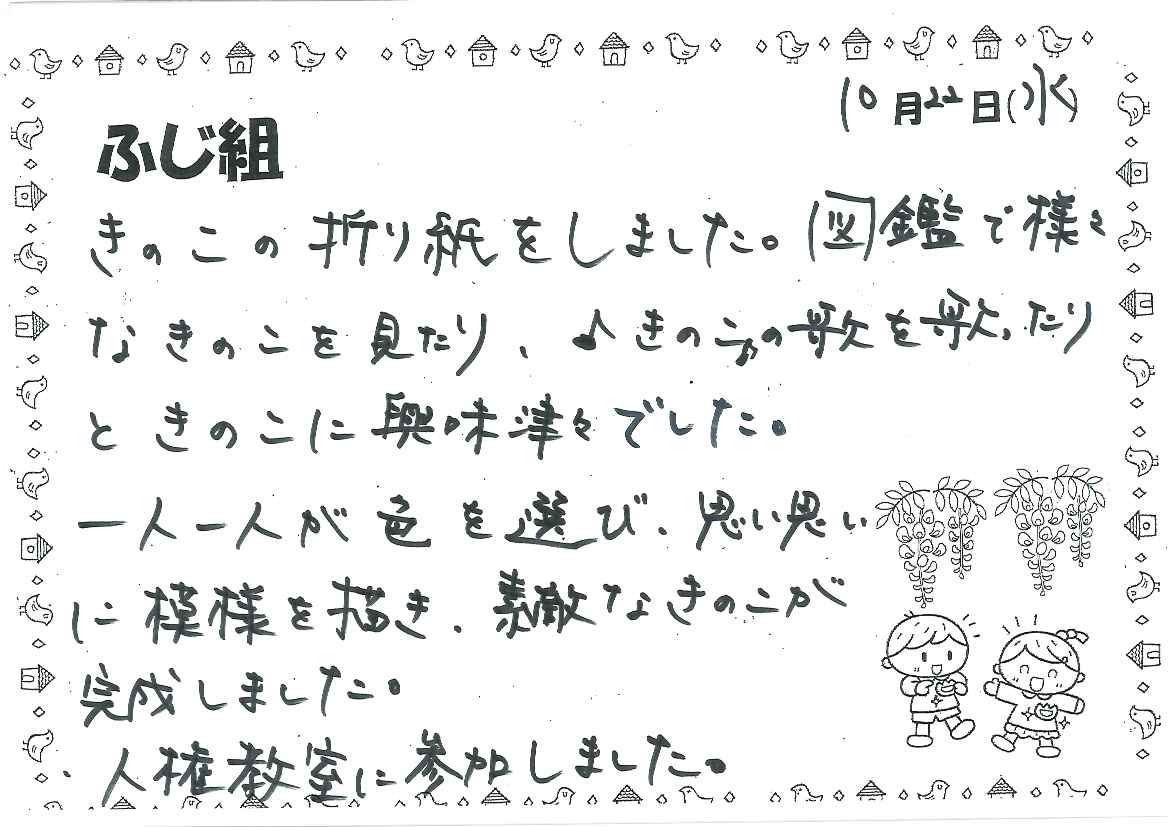 10月22日(水)
ふじ組
きのこの折り紙をしました。図鑑で様々
なきのこを見たり、♪きのこ♪の歌を歌ったり
ときのこに興味津々でした。
一人一人が色を選び、思い思い
に模様を描き、素敵なきのこが
完成しました。
・人権教室に参加しました。